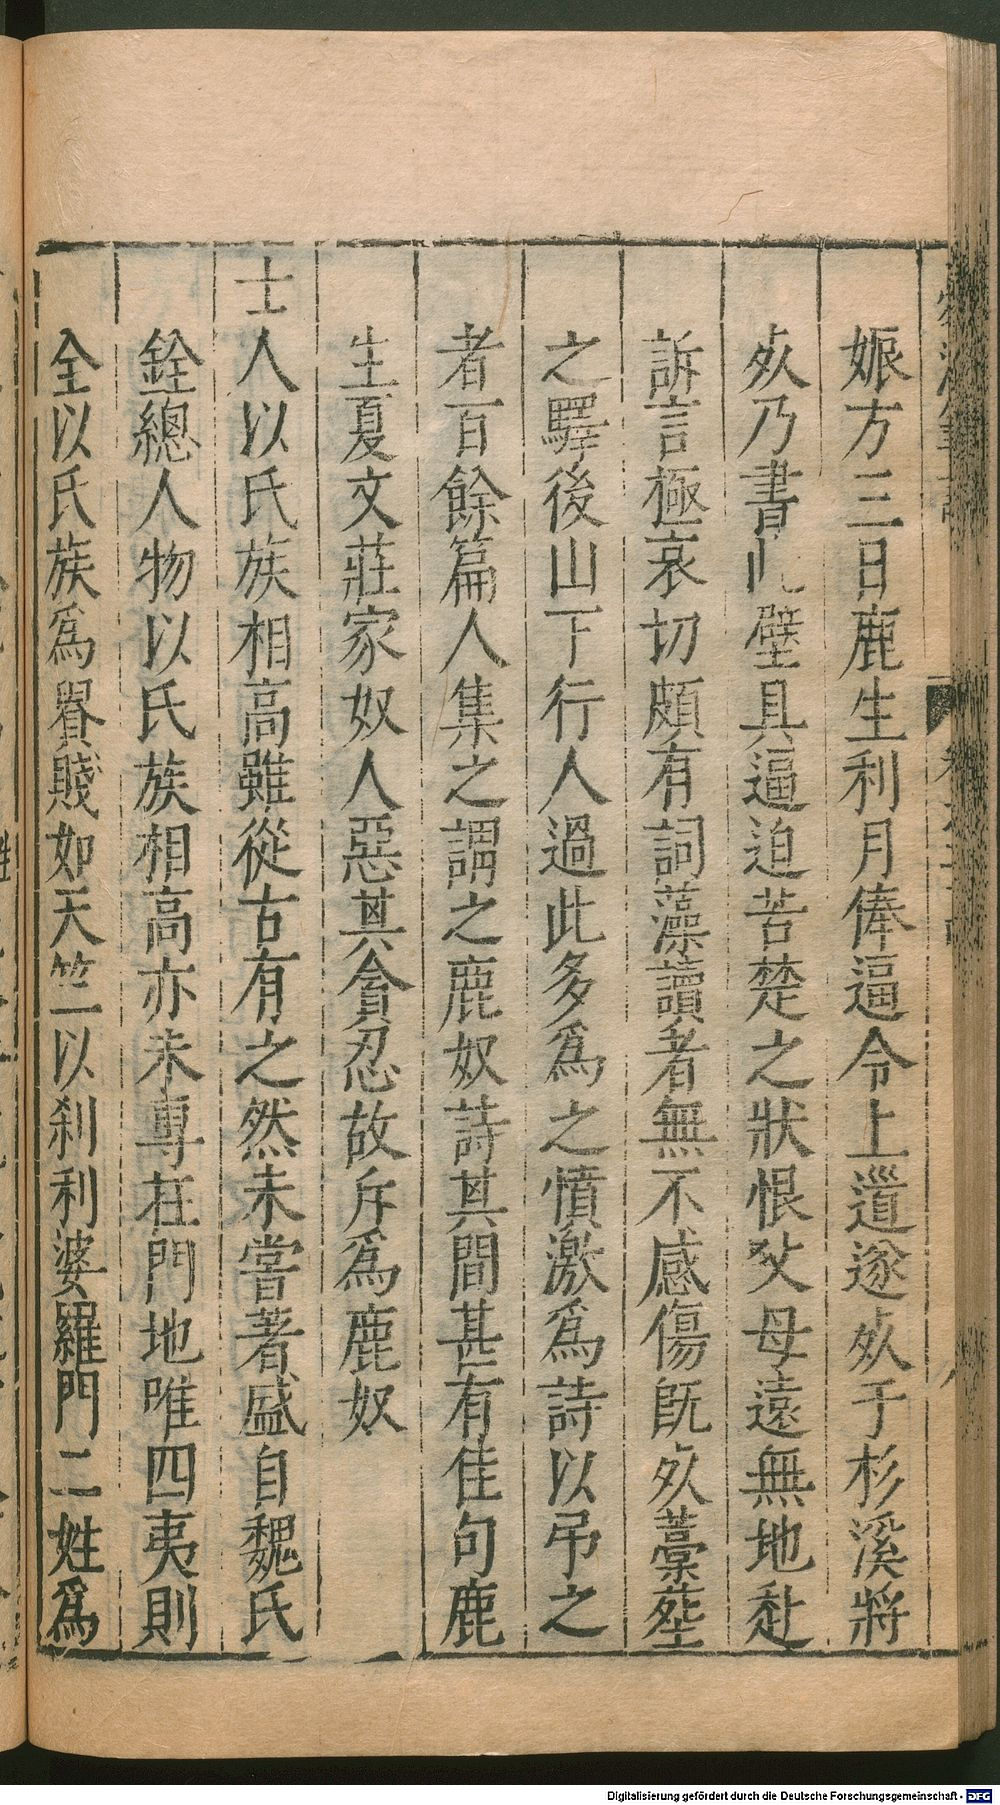 娠方三日鹿生利月俸逼令上道遂死于杉溪將
死乃書此壁具逼迫苦楚之狀恨父母遠無地赴
訴言極哀切頗有詞藻讀者無不感傷既死藁葬
之驛後山下行人過此多爲之憤激爲詩以弔之
者百餘篇人集之謂之鹿奴詩其間甚有佳句鹿
生夏文莊家奴人惡其貪忍故斥爲鹿奴
士人以氏族相高雖從古有之然未嘗著盛自魏氏
銓總人物以氏族相高亦未專任門地唯四夷則
全以氏族爲貴賤如天竺以刹利婆羅門二姓爲
Digitalisierung gefördert durch die Deutsche Forschungsgemeinschaft - DFG